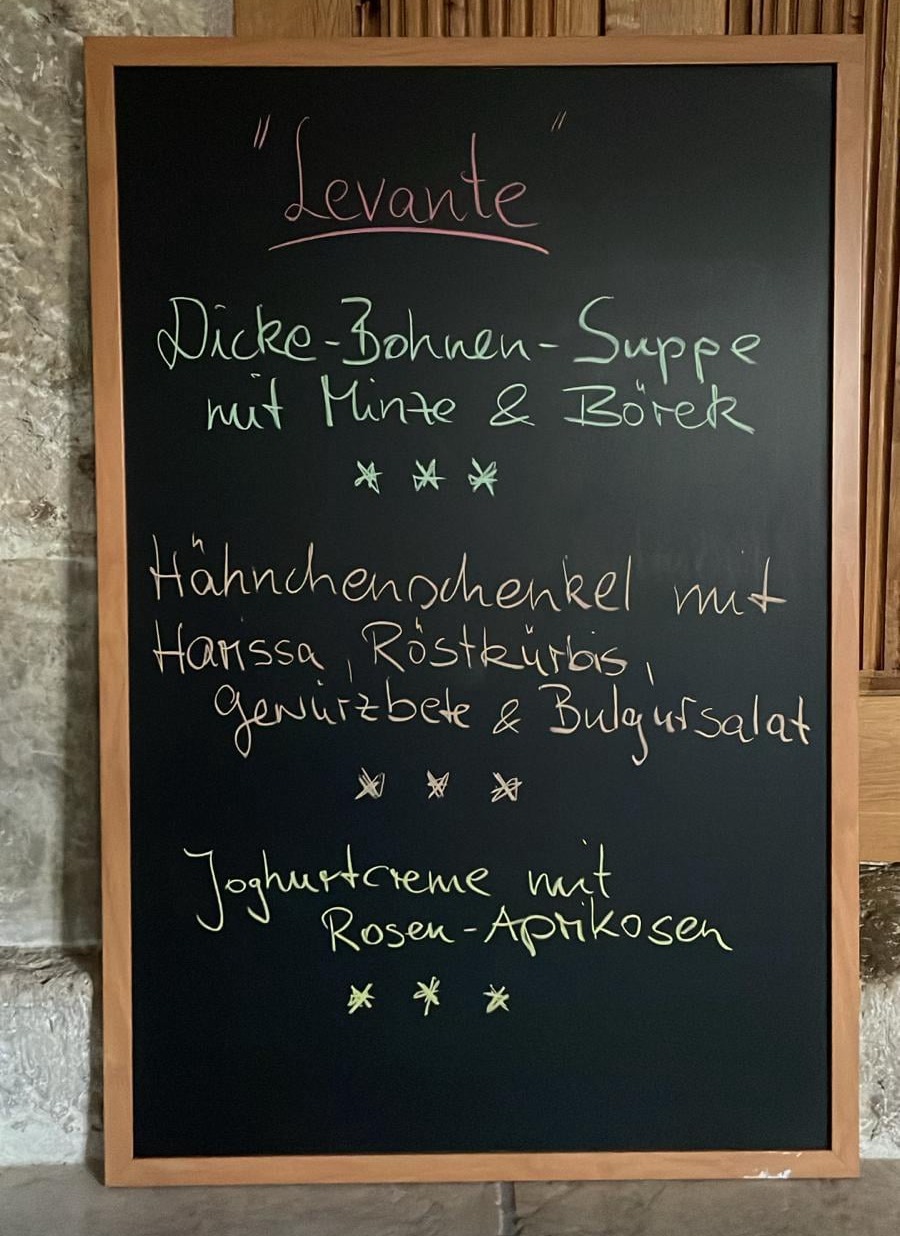 "Levante"
Dicke-Bohnen-Suppe
mit Minze & Börek
* * *
Hähnchenschenkel mit
Harissa, Röstkürbis,
Gewürzbete & Bulgursalat
* * *
Joghurtcreme mit
Rosen-Aprikosen
* * *